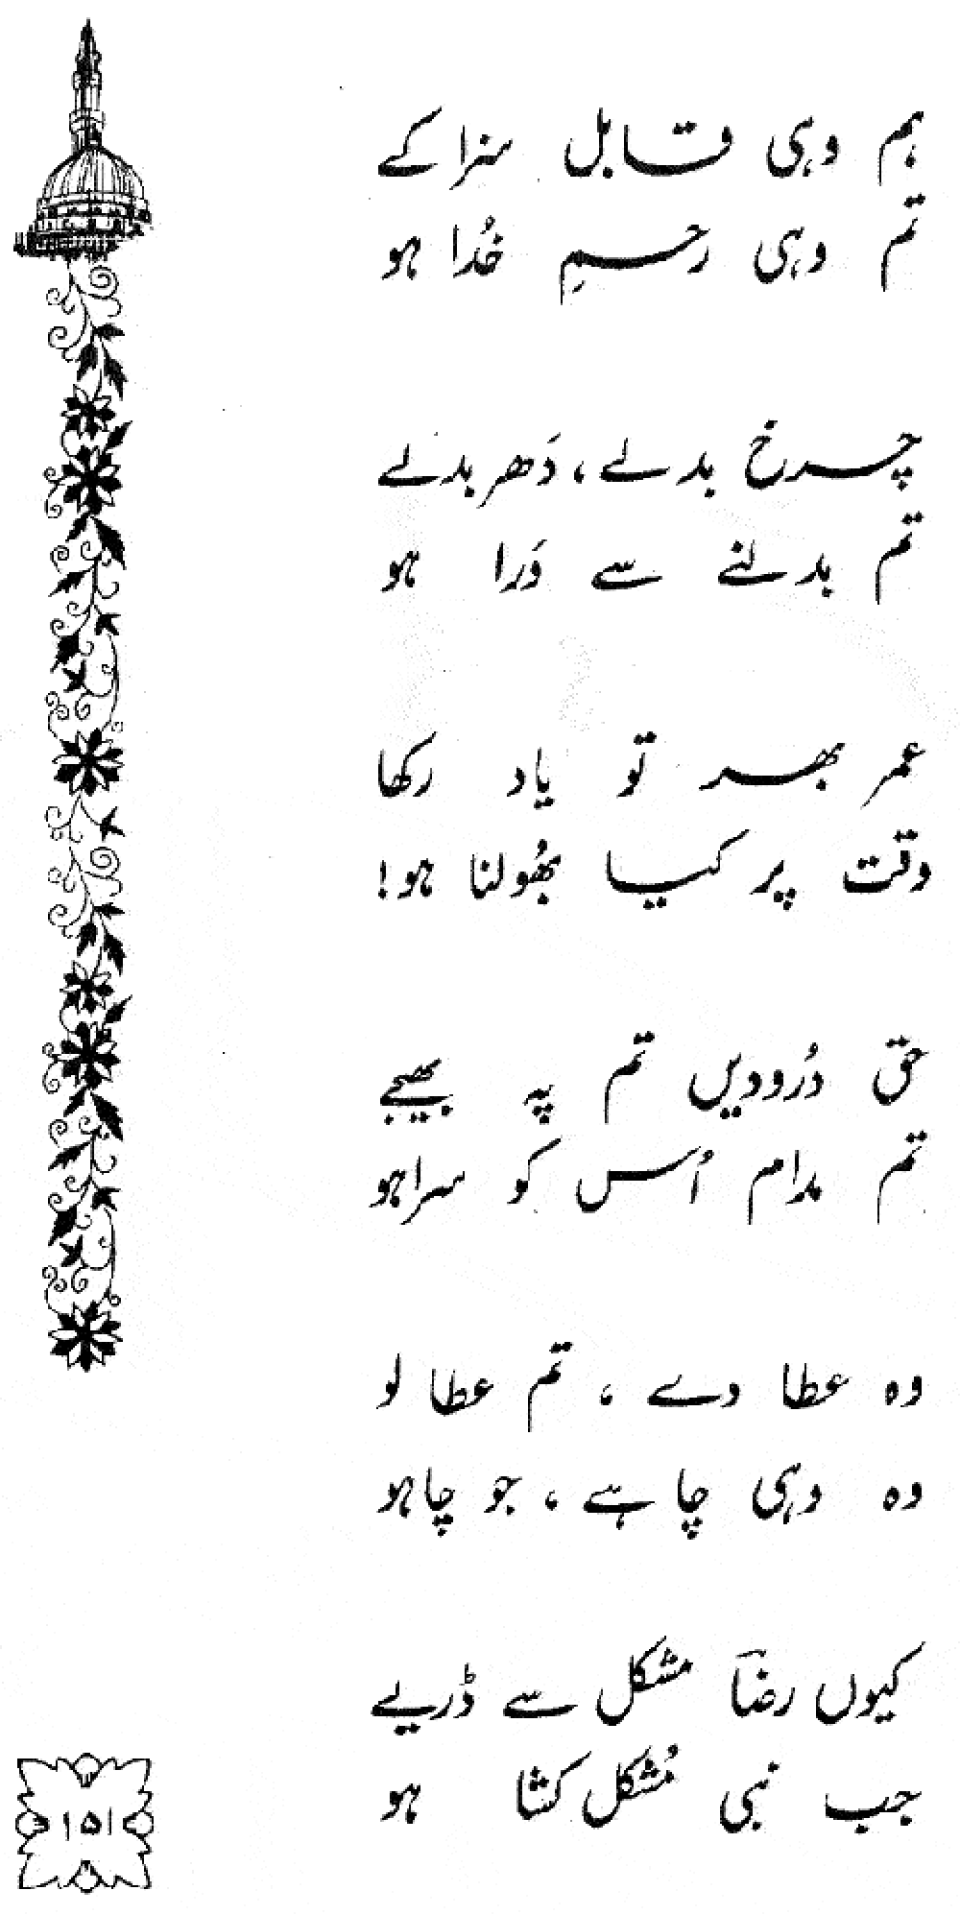 ہم وہی قابل سزا کے
تم وہی رحمِ خُدا ہو
چرخ بدلے، دَھر بدلے
تم بدلنے سے وَرا ہو
عمر بھر تو یاد رکھا
وقت پر کیا بھُولنا ہو!
حق دُرودیں تم پہ بھیجے
تم مدام اُس کو سراہو
وہ عطا دے ، تم عطا لو
وہ وہی چاہے ، جو چاہو
کیوں رضاؔ مشکل سے ڈریے
جب نبی مُشکل کشا ہو
۱۵۱